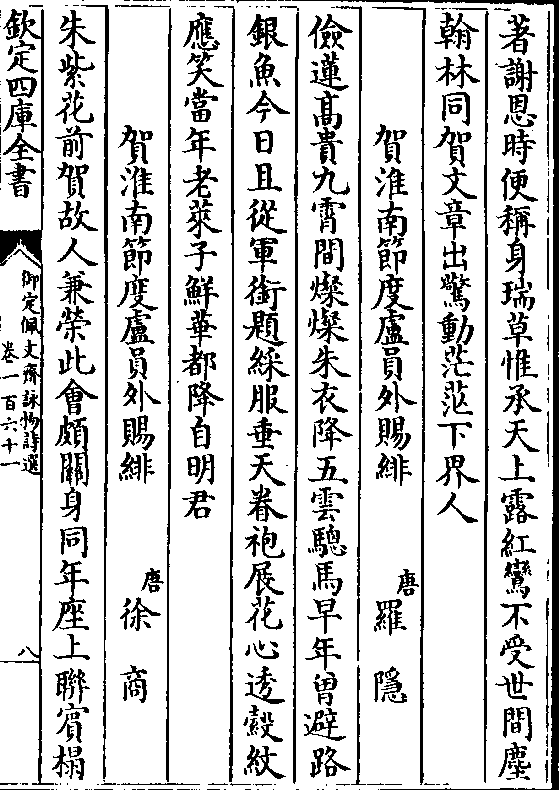 著謝恩時便稱身瑞草惟承天上露紅鸞不受世間塵
翰林同賀文章出驚動茫茫下界人
賀淮南節度盧員外賜緋 唐 羅隱
儉蓮高貴九霄間燦燦朱衣降五雲驄馬早年曽避路
銀魚今日且從軍銜題綵服垂天眷袍展花心透縠紋
應笑當年老萊子鮮華都降自明君
賀淮南節度盧員外賜緋 唐 徐商
朱紫花前賀故人兼榮此會頗關身同年座上聯賓榻
欽定四庫全書
御定佩文齋詠物詩選
卷一百六十一
八